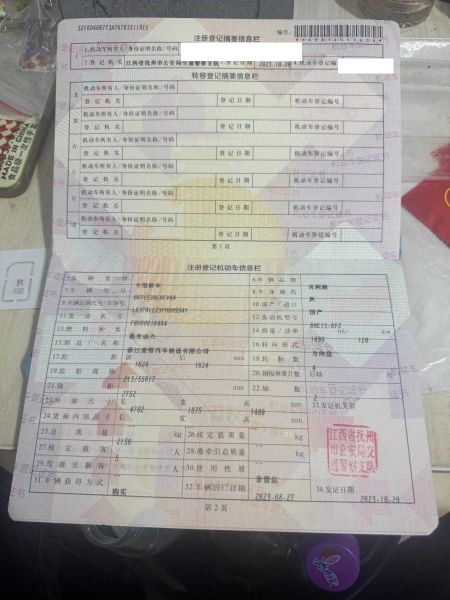 注册登记摘要信息栏
编号:
I
1.机动车所有人/身份证明名称/号码
2.登记机关 江西省抚州市公安局交通警察支队 3.登记日期 2023-10-20 4.机动车登记编号
转移登记摘要信息栏
II
机动车所有人/身份证明名称/号码
登记机关 登记日期 机动车登记编号
III
机动车所有人/身份证明名称/号码
登记机关 登记日期 机动车登记编号
IV
机动车所有人/身份证明名称/号码
登记机关 登记日期 机动车登记编号
V
机动车所有人/身份证明名称/号码
登记机关 登记日期 机动车登记编号
VI
机动车所有人/身份证明名称/号码
登记机关 登记日期 机动车登记编号
VII
机动车所有人/身份证明名称/号码
登记机关 登记日期 机动车登记编号
第1页
注册登记机动车信息栏
5.车辆类型 小型轿车 6.车辆品牌 吉利牌
7.车辆型号 8.车身颜色 灰
9.车辆识别代号/车架号 10.国产/进口 国产
11.发动机号 12.发动机型号 BHE15-BFZ
13.燃料种类 混合动力 14.排量/功率 1499 ml/ 120 kw
15.制造厂名称 浙江金桥汽车制造有限公司 16.转向形式 方向盘
17.轮距 前 1624 后 1624 mm 18.轮胎数 4
19.轮胎规格 215/55R17 20.钢板弹簧片数 后轴
21.轴距 2752 mm 22.轴数 2
23.外廓尺寸 长 4782 宽 1875 高 1489 mm 33.发证机关章
24.货厢内部尺寸 长 宽 高 mm
25.总质量 2150 kg 26.核定载质量 kg
27.核定载客 5 人 28.准牵引总质量 kg
29.驾驶室载客 人 30.使用性质 非营运
31.车辆获得方式 购买 32.车辆出厂日期 2023-08-27 34.发证日期 2023-10-20
江西省抚州
市公安局交
通警察支队
第2页
MADE IN CHINA